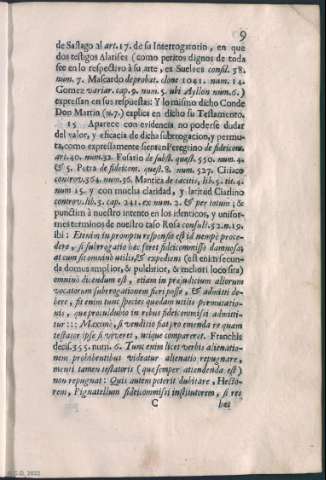 9
de Sastago al art. 17. de su Interrogatorio, en que
dos testigos Alatises (como peritos dignos de toda
fee en lo respectivo à su arte, ex Suelves consil. 38.
num. 7. Mascardo de probat. clone 1041. num. 14.
Gomez variar. cap. 9. num. 5. ubi Ayllon num. 6.)
expressan en sus respuestas: Y lo mismo dicho Conde
Don Martin (n. 7.) explica en dicho su Testamento.
15 Aparece con evidencia no poderse dudar
del valor, y eficacia de dicha subrrogacion, y permu-
ta, como expressamente sienten Peregrino de fideicom.
art. 40. num. 32. Fusario de subst. quæst. 550. num. 4.
& 5. Petra de fideicom. quæst. 8. num. 527. Ciriaco
controv. 364. num. 56. Mantica de tacitis, lib. 5. tit. 4.
num 15. y con mucha claridad, y latitud Ciarlino
controv. lib. 3. cap. 241. ex num. 2. & per totum; &
punctim à nuestro intento en los identicos, y unifor-
mes terminos de nuestro caso Rosa consult. 52. n. 19.
ibi: Etenim in promptu responsio est id nempè proce-
dere, si subrrogatio hæc foret fideicommisso damnosa,
at cum sit omninò utilis, & expediens (est enim secun-
da domus amplior, & pulchrior, & meliori loco sita)
omninò dicendum est, etiam in præjudicium aliorum
vocatorum subrrogationem fieri posse, & admitti de-
bere, fit enim tunc species quædam utilis permutatio-
nis, quæ procul dubio in rebus fideicommissi admitti-
tur::: Maximè, si venditio fiat pro emenda re quam
testator ipse si viveret, utique compararet. Franchis
decis. 355. num. 6. Tunc enim licet verbis alienatio-
nem prohibentibus videatur alienatio repugnare,
menti tamen testatoris (quæ semper attendenda est)
non repugnat: Quis autem poterit dubitare, Hecto-
rem, Pignatellum fideicommissi institutorem, si rei
C
hæc